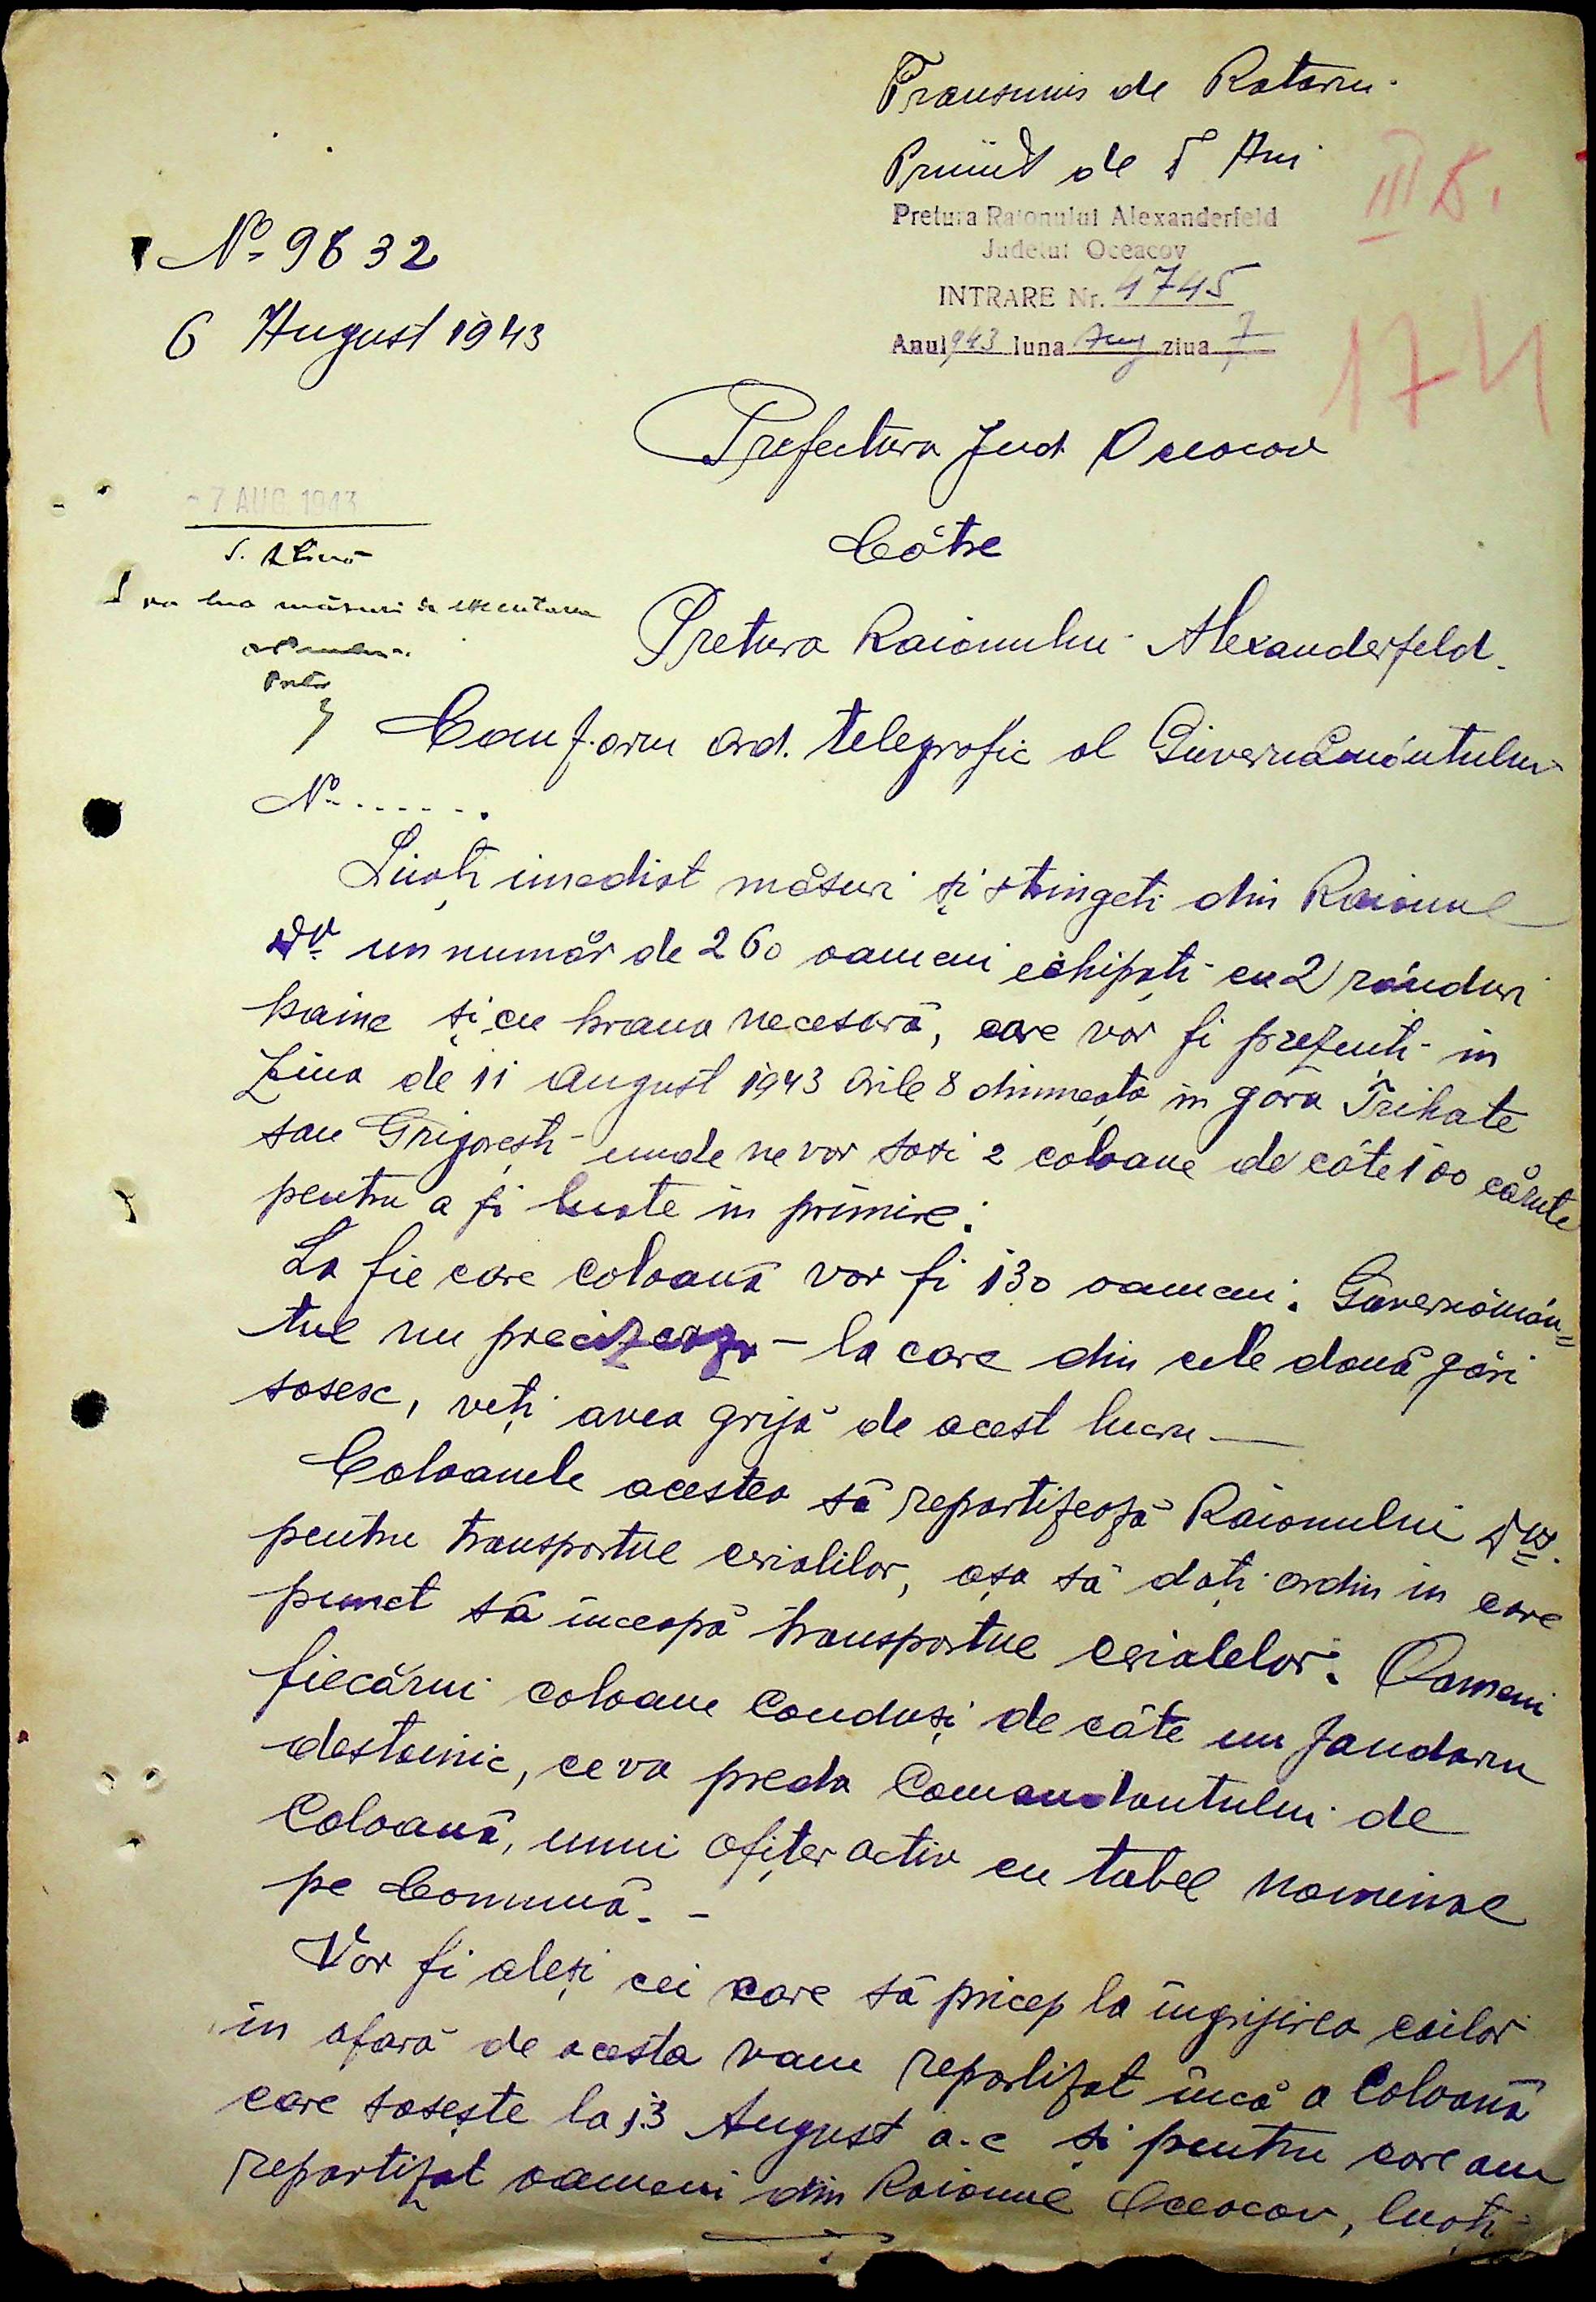 Transmis de Rotaru.
Primit de
Pretura Raionului Alexanderfeld
Județul Oceacov
INTRARE Nr. 4745
Anul 943 luna Aug ziua 7
III
174
No 9832
6 August 1943
Prefectura Jud Oceacov
Către
- 7 AUG. 1943
va lua măsuri de executare
Pretor
Pretura Raionului Alexanderfeld.
Conform ord. telegrafic al Guvernământului
No . . . . . .
Luați imediat măsuri și stringeti din Raionul
Dv un număr de 260 oameni echipați cu 2 rânduri
haine și cu hrana necesară, care vor fi prezenți în
Ziua de 11 August 1943 Orile 8 dimineața în gara Trihate
sau Grigorești unde ne vor sosi 2 coloane de câte 100 căruțe
pentru a fi luate în primire.
La fie care coloană vor fi 130 oameni. Guvernămân=
tul nu precizeaza – la care din cele două gări
sosesc, veți avea grijă de acest lucru —
Coloanele acestea să repartizează Raionului Dv.
pentru transportul cerialilor, așa să dați ordin in care
punct să inceapă transportul cerialelor. Oameni
fiecărui coloane Conduși de câte un Jandarm
destoinic, ce va preda Comandantului de
Coloană, unui ofițer activ cu tabel nominal
pe Comună. –
Vor fi aleși cei care să pricep la îngrijirea cailor
in afară de acesta vam repartizat încă o Coloană
care sosește la 13 August a.c și pentru care am
repartizat oameni din Raionul Oceacov, luați